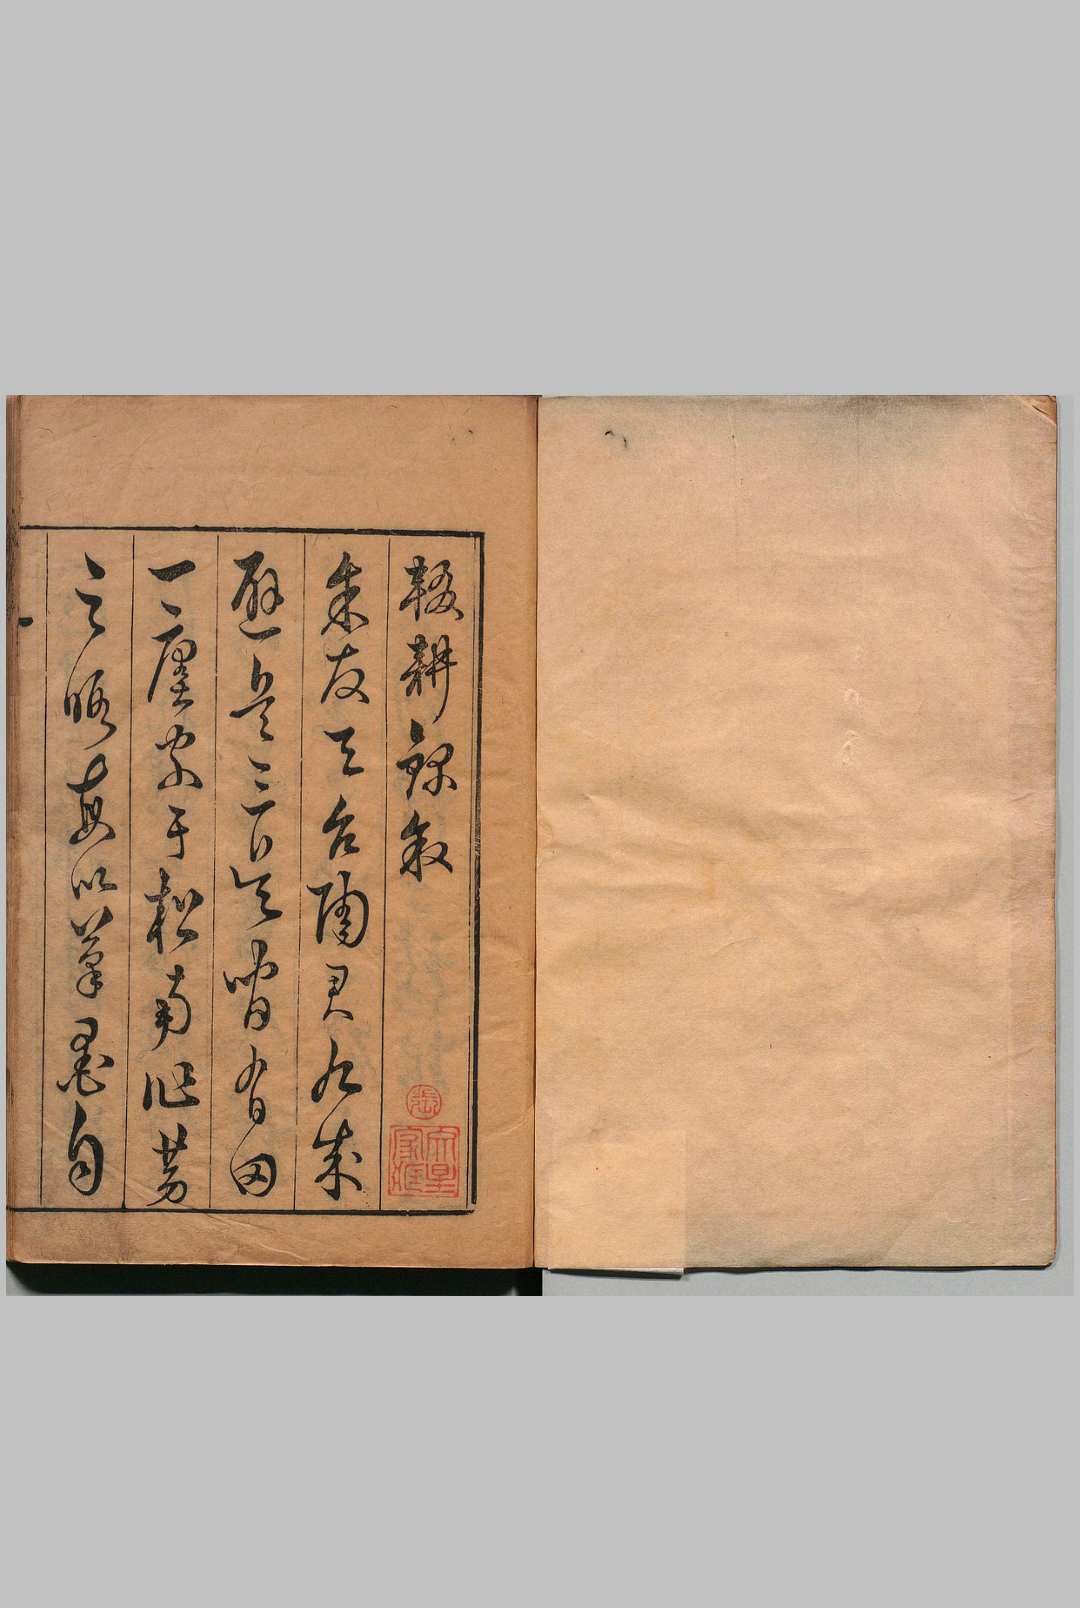 輟耕錄叙
余友天台陶君九成
避兵三吳間有田
一廛家于松南作勞
之暇每以筆墨自
張